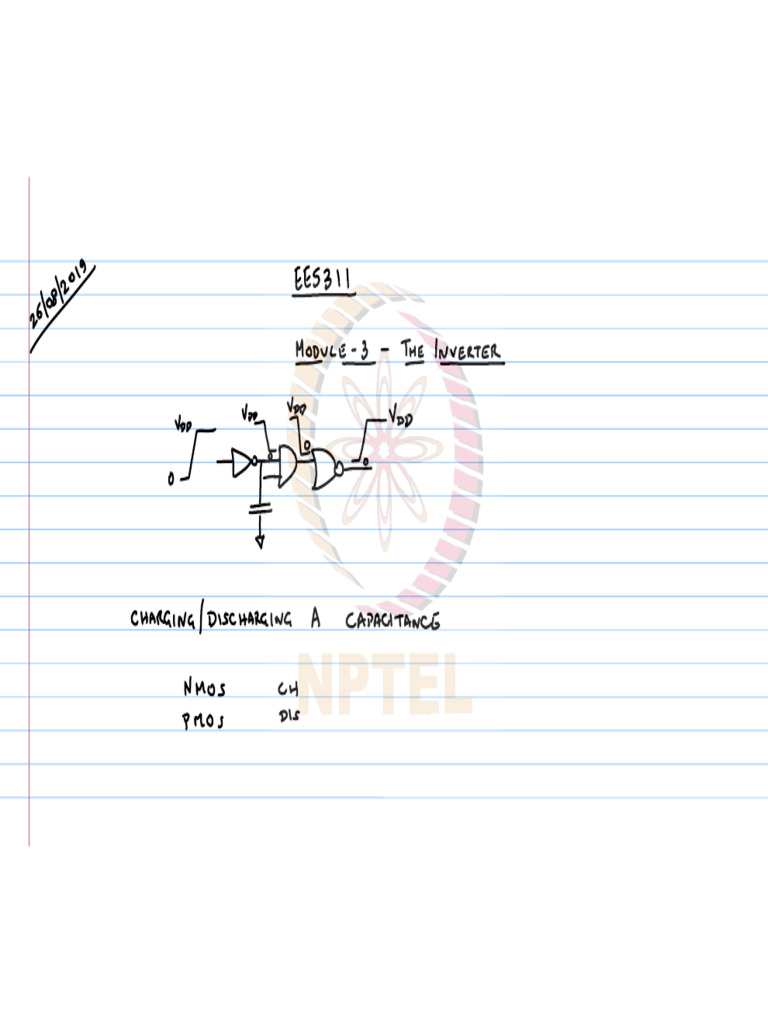 26/08/2019
EE5311
MODULE-3 - THE INVERTER
VDD
VDD
VDD
VDD
0
0
0
0
CHARGING/DISCHARGING A CAPACITANCE
NMOS CH
PMOS DIS
NPTEL